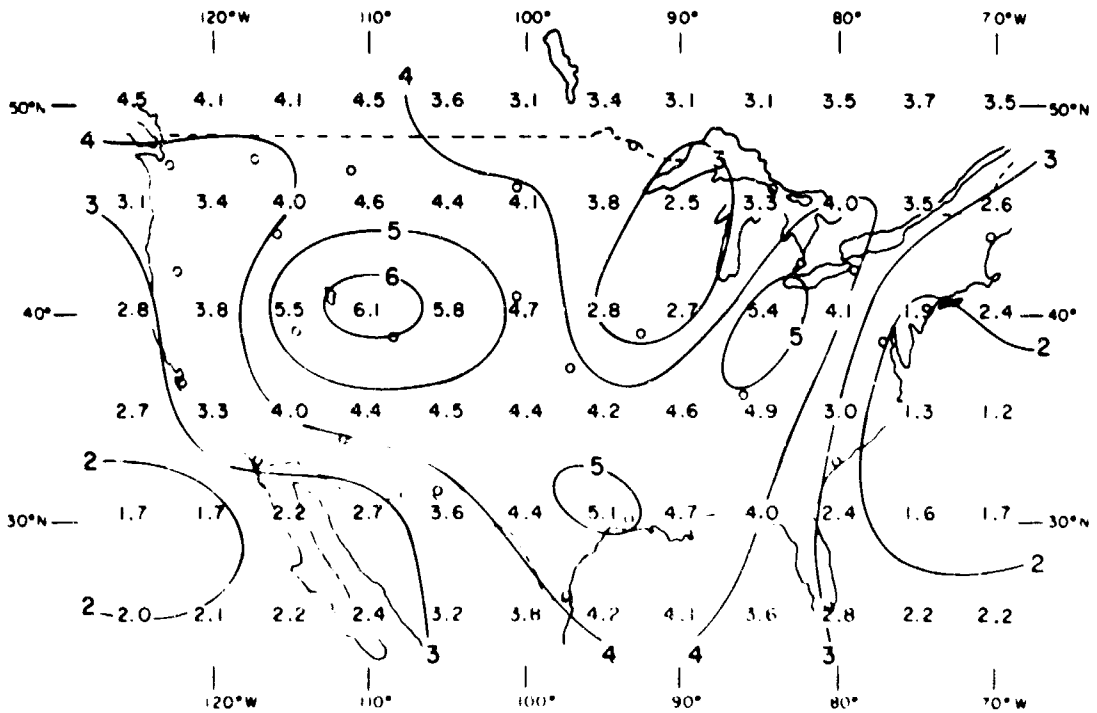 120°W 110° 100° 90° 80° 70°W
4
50°N 4.5 4.1 4.1 4.5 3.6 3.1 3.4 3.1 3.1 3.5 3.7 3.5 50°N
4
3 3
3 3.1 3.4 4.0 4.6 4.4 4.1 3.8 2.5 3.3 4.0 3.5 2.6
5
6
40° 2.8 3.8 5.5 6.1 5.8 4.7 2.8 2.7 5.4 4.1 1.9 2.4 40°
5 2
2.7 3.3 4.0 4.4 4.5 4.4 4.2 4.6 4.9 3.0 1.3 1.2
2 5
30°N 1.7 1.7 2.2 2.7 3.6 4.4 5.1 4.7 4.0 2.4 1.6 1.7 30°N
2
2 2.0 2.1 2.2 2.4 3.2 3.8 4.2 4.1 3.6 2.8 2.2 2.2
3 4 4 3
120°W 110° 100° 90° 80° 70°W